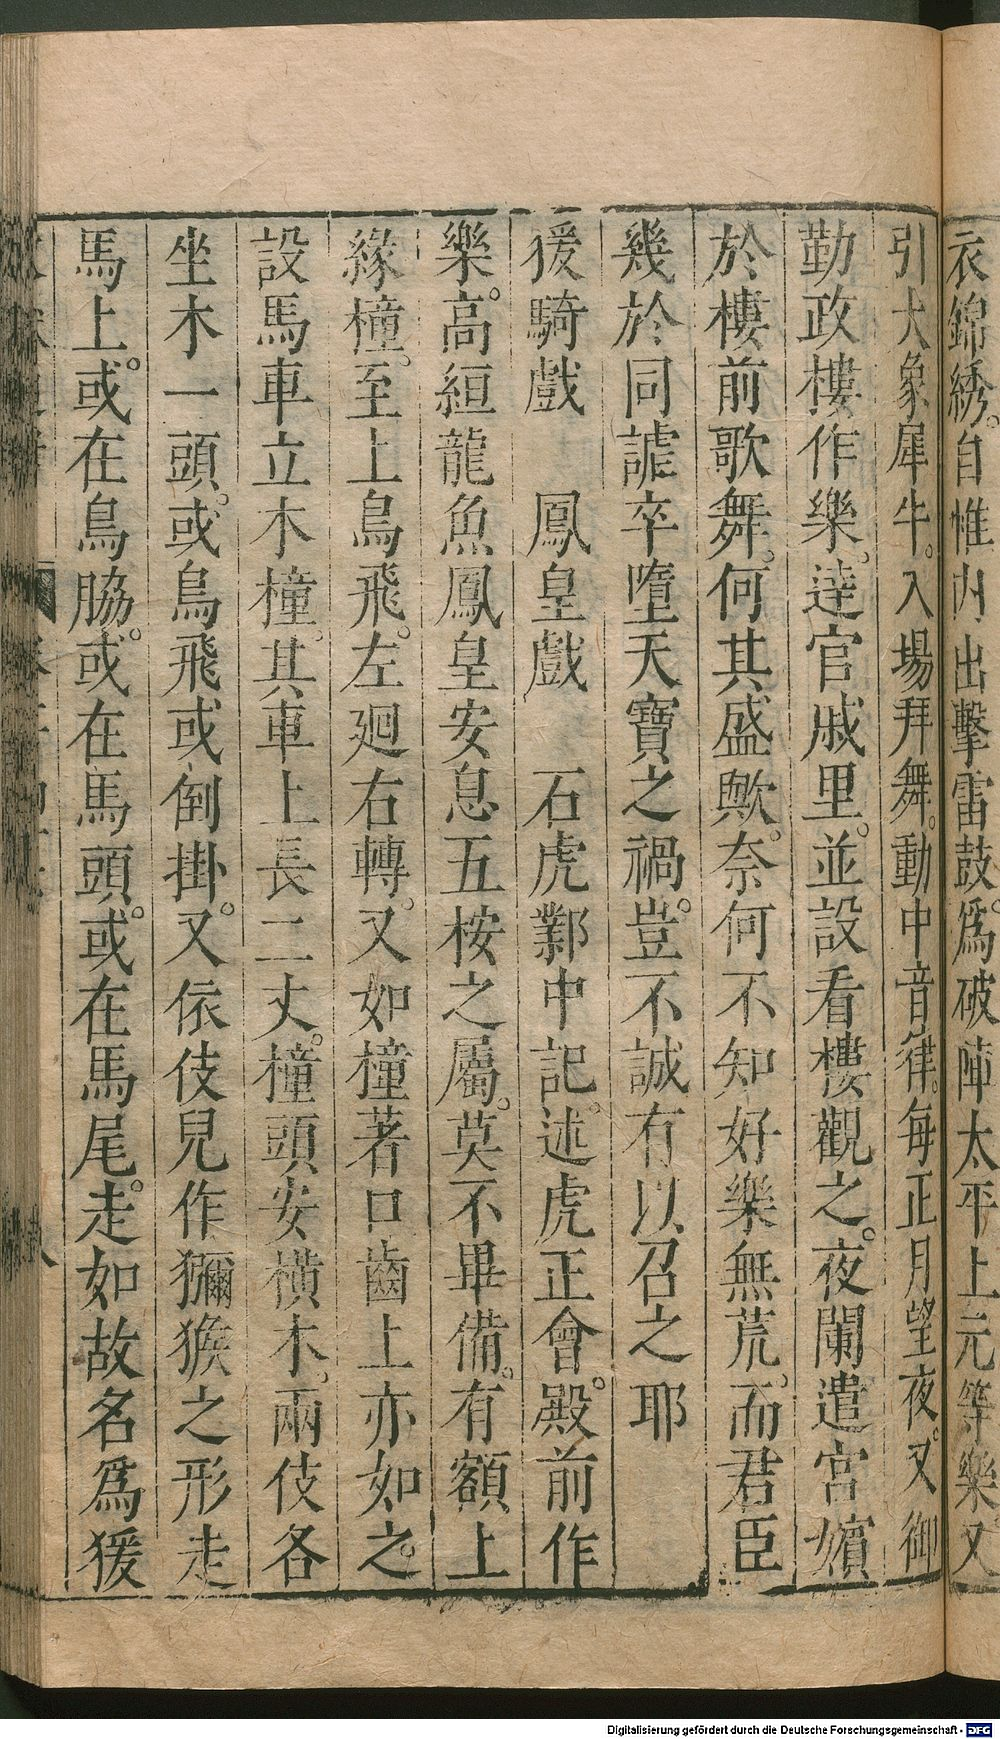 衣錦綉。自帷内出擊雷鼓。爲破陣太平上元等樂。又
引大象犀牛。入場拜舞。動中音律。每正月望夜。又御
勤政樓作樂。逹官戚里。並設看樓觀之。夜闌遣宮嬪
於樓前歌舞。何其盛歟。奈何不知好樂無荒。而君臣
幾於同謔卒墮天寶之禍。豈不誠有以召之耶
猨騎戲 鳳皇戲 石虎鄴中記。述虎正會。殿前作
樂。高絙龍魚鳳皇安息五桉之屬。莫不畢備。有額上
緣橦。至上鳥飛。左廻右轉。又如橦著口齒上亦如之。
設馬車立木橦。其車上長二丈。橦頭安橫木。兩伎各
坐木一頭。或鳥飛或倒掛。又依伎兒作獼猴之形走
馬上。或在鳥脇。或在馬頭。或在馬尾。走如故名爲猨
八
Digitalisierung gefördert durch die Deutsche Forschungsgemeinschaft - DFG